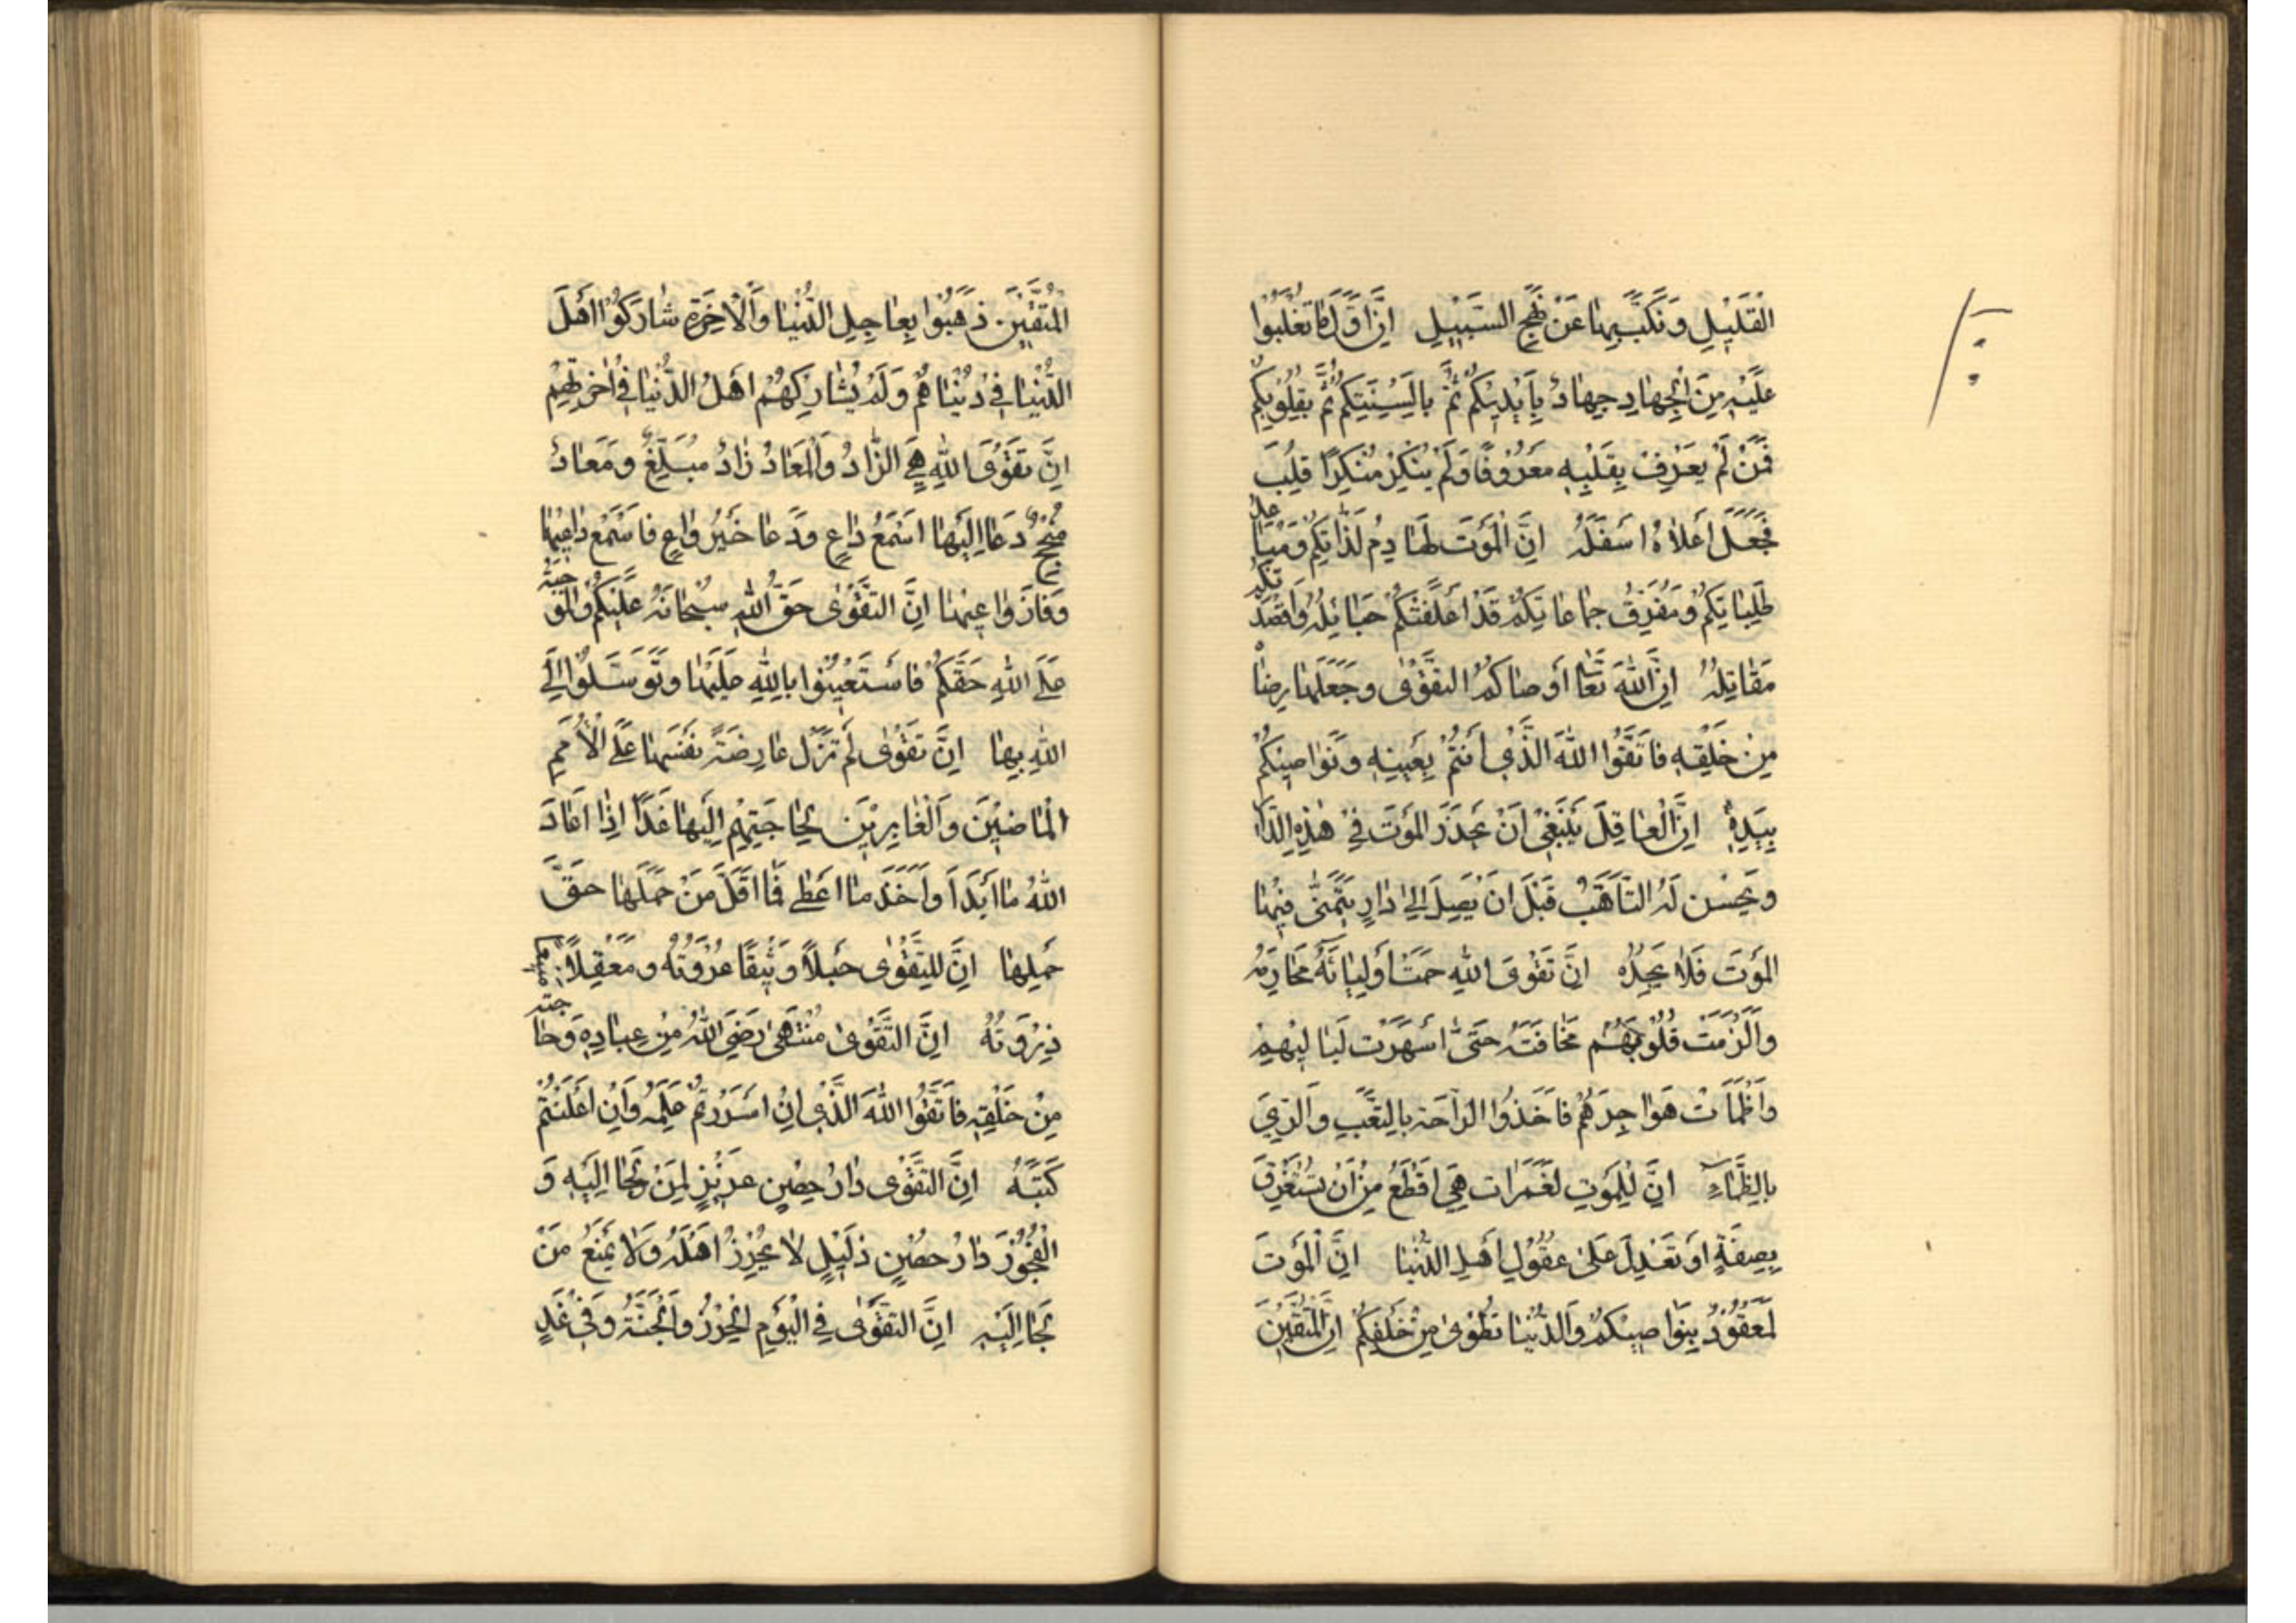 الْقَلِيلِ وَنَكَّبَ بِهَا عَنْ نَهْجِ السَّبِيلِ إِنَّ أَوَّلَ مَا تُغْلَبُوا
عَلَيْهِ مِنَ الْجِهَادِ جِهَادٌ بِأَيْدِيكُمْ ثُمَّ بِأَلْسِنَتِكُمْ ثُمَّ بِقُلُوبِكُمْ
فَمَنْ لَمْ يَعْرِفْ بِقَلْبِهِ مَعْرُوفًا وَلَمْ يُنْكِرْ مُنْكَرًا قُلِبَ
فَجُعِلَ أَعْلَاهُ أَسْفَلَهُ إِنَّ الْمَوْتَ لَهَادِمُ لَذَّاتِكُمْ وَمُبَاعِدُ
طَلِبَاتِكُمْ وَمُفَرِّقُ جَمَاعَاتِكُمْ قَدْ أَعْلَقَتْكُمْ حَبَائِلُهُ وَأَقْصَدَتْكُمْ
مَقَاتِلُهُ إِنَّ اللهَ تَعَالَى أَوْصَاكُمْ التَّقْوَى وَجَعَلَهَا رِضَا
مِنْ خَلْقِهِ فَاتَّقُوا اللهَ الَّذِي أَنْتُمْ بِعَيْنِهِ وَنَوَاصِيكُمْ
بِيَدِهِ إِنَّ الْعَاقِلَ يَنْبَغِي أَنْ يَحْذَرَ الْمَوْتَ فِي هَذِهِ الدَّارِ
وَيُحْسِنَ لَهُ التَّأَهُّبَ قَبْلَ أَنْ يَصِلَ إِلَى دَارٍ يَتَمَنَّى فِيهَا
الْمَوْتَ فَلَا يَجِدُهُ إِنَّ تَقْوَى اللهِ حَمَتْ أَوْلِيَائَهُ مَحَارِمَهُ
وَأَلْزَمَتْ قُلُوبَهُمْ مَخَافَتَهُ حَتَّى أَسْهَرَتْ لَيَالِيَهُمْ
وَأَظْمَأَتْ هَوَاجِرَهُمْ فَأَخَذُوا الرَّاحَةَ بِالتَّعَبِ وَالرِّيَ
بِالظَّمَاءِ إِنَّ لِلْمَوْتِ لَغَمَرَاتٍ هِيَ أَفْظَعُ مِنْ أَنْ تُسْتَغْرَقَ
بِصِفَةٍ أَوْ تَعْتَدِلَ عَلَى عُقُولِ أَهْلِ الدُّنْيَا إِنَّ الْمَوْتَ
لَمَعْقُودٌ بِنَوَاصِيكُمْ وَالدُّنْيَا تُطْوَى مِنْ خَلْفِكُمْ إِنَّ الْمُتَّقِينَ
الْمُتَّقِينَ ذَهَبُوا بِعَاجِلِ الدُّنْيَا وَالْآخِرَةِ شَارَكُوا أَهْلَ
الدُّنْيَا فِي دُنْيَاهُمْ وَلَمْ يُشَارِكْهُمْ أَهْلُ الدُّنْيَا فِي آخِرَتِهِمْ
إِنَّ تَقْوَى اللهِ هِيَ الزَّادُ وَالْمَعَادُ زَادٌ مُبَلِّغٌ وَمَعَادٌ
مُنْجِحٌ دَعَا إِلَيْهَا أَسْمَعُ دَاعٍ وَدَعَا خَيْرُ وَاعٍ فَأَسْمَعَ دَاعِيهَا
وَفَازَ وَاعِيهَا إِنَّ التَّقْوَى حَقُّ اللهِ سُبْحَانَهُ عَلَيْكُمْ وَالْمُوجِبَةُ
عَلَى اللهِ حَقَّكُمْ فَاسْتَعِينُوا بِاللهِ عَلَيْهَا وَتَوَسَّلُوا إِلَى
اللهِ بِهَا إِنَّ تَقْوَى لَمْ تَزَلْ عَارِضَةً نَفْسَهَا عَلَى الْأُمَمِ
الْمَاضِينَ وَالْغَابِرِينَ لِحَاجَتِهِمْ إِلَيْهَا غَدًا إِذَا أَعَادَ
اللهُ مَا أَبْدَأَ وَأَخَذَ مَا أَعْطَى فَمَا أَقَلَّ مَنْ حَمَلَهَا حَقَّ
حَمْلِهَا إِنَّ لِلتَّقْوَى حَبْلًا وَثِيقًا عُرْوَتُهُ وَمَعْقِلًا مَنِيعًا
ذِرْوَتُهُ إِنَّ التَّقْوَى مُنْتَهَى رِضَى اللهِ مِنْ عِبَادِهِ وَحَاجَتِهِ
مِنْ خَلْقِهِ فَاتَّقُوا اللهَ الَّذِي إِنْ أَسْرَرْتُمْ عَلِمَهُ وَإِنْ أَعْلَنْتُمْ
كَتَبَهُ إِنَّ التَّقْوَى دَارُ حِصْنٍ عَزِيزٍ لِمَنْ لَجَا إِلَيْهِ وَ
الْفُجُورَ دَارُ حِصْنٍ ذَلِيلٍ لَا يُحْرِزُ أَهْلَهُ وَلَا يَمْنَعُ مَنْ
لَجَا إِلَيْهِ إِنَّ التَّقْوَى فِي الْيَوْمِ الْحِرْزُ وَالْجُنَّةُ وَفِي غَدٍ